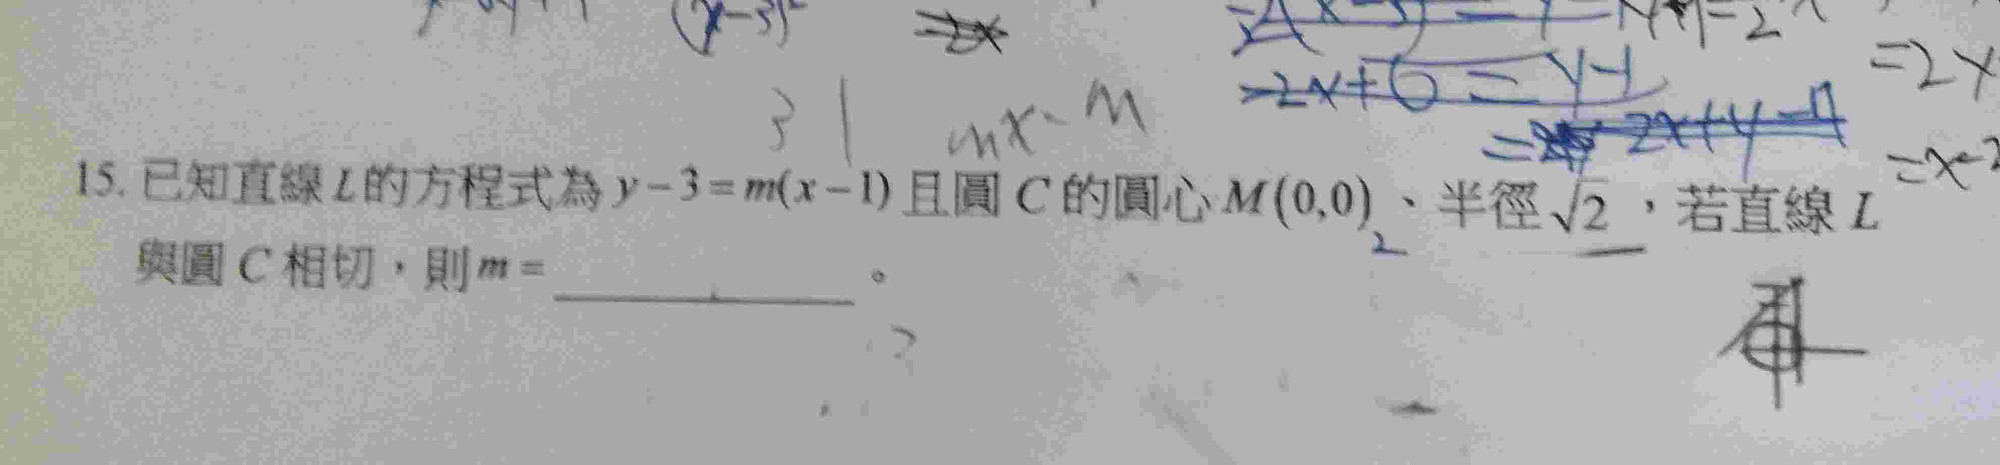 (x-3)²
=2x
-2x+6=y-1
=2x
3 1 mx-m
15. 已知直線L的方程式為 y-3=m(x-1) 且圓 C 的圓心 M(0,0)、半徑√2，若直線 L
2
與圓 C 相切，則 m= ＿＿＿＿＿＿。